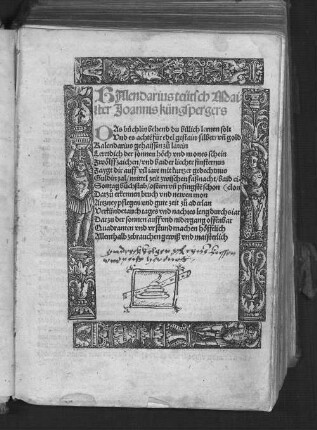 Kalendarius teütsch Mai/
ster Joannis küngspergers
DAs büchlin behend du billich lernen solt
Vnd es achtē für edel gestain silber vñ gold
Kalendarius gehaissen zů latein
Lerndich der sonnen höch vnd mones schein
Zwölff zaichen/ vnd baider liechte finsternus
Zaygt dir auff vil iar mit kurtzer gedechtnus
Guldin zal/ interuel zeit zwischen faßnacht/ baid ci-
Sontag bůchstab/ ostern vñ pfingste schon clon
Darzů erkennen bruch vnd newen mon
Artzney pflegen vnd gute zeit zů aderlan
Verkündet auch tages vnd nachtes leng durchs iar
Darzů der sonnen auff vnd nidergang offenbar
Quadranten vnd vr/kund machen höfflich
Allenthalb zebrauchen gewiß vnd maisterlich